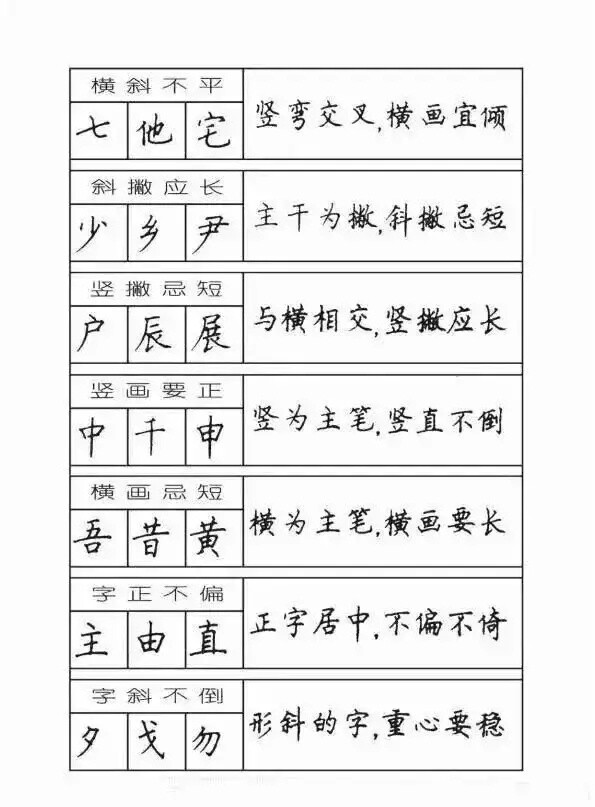 横斜不平
七 他 宅
竖弯交叉,横画宜倾
斜撇应长
少 乡 尹
主干为撇,斜撇忌短
竖撇忌短
户 辰 展
与横相交,竖撇应长
竖画要正
中 千 申
竖为主笔,竖直不倒
横画忌短
吾 昔 黄
横为主笔,横画要长
字正不偏
主 由 直
正字居中,不偏不倚
字斜不倒
夕 戈 勿
形斜的字,重心要稳